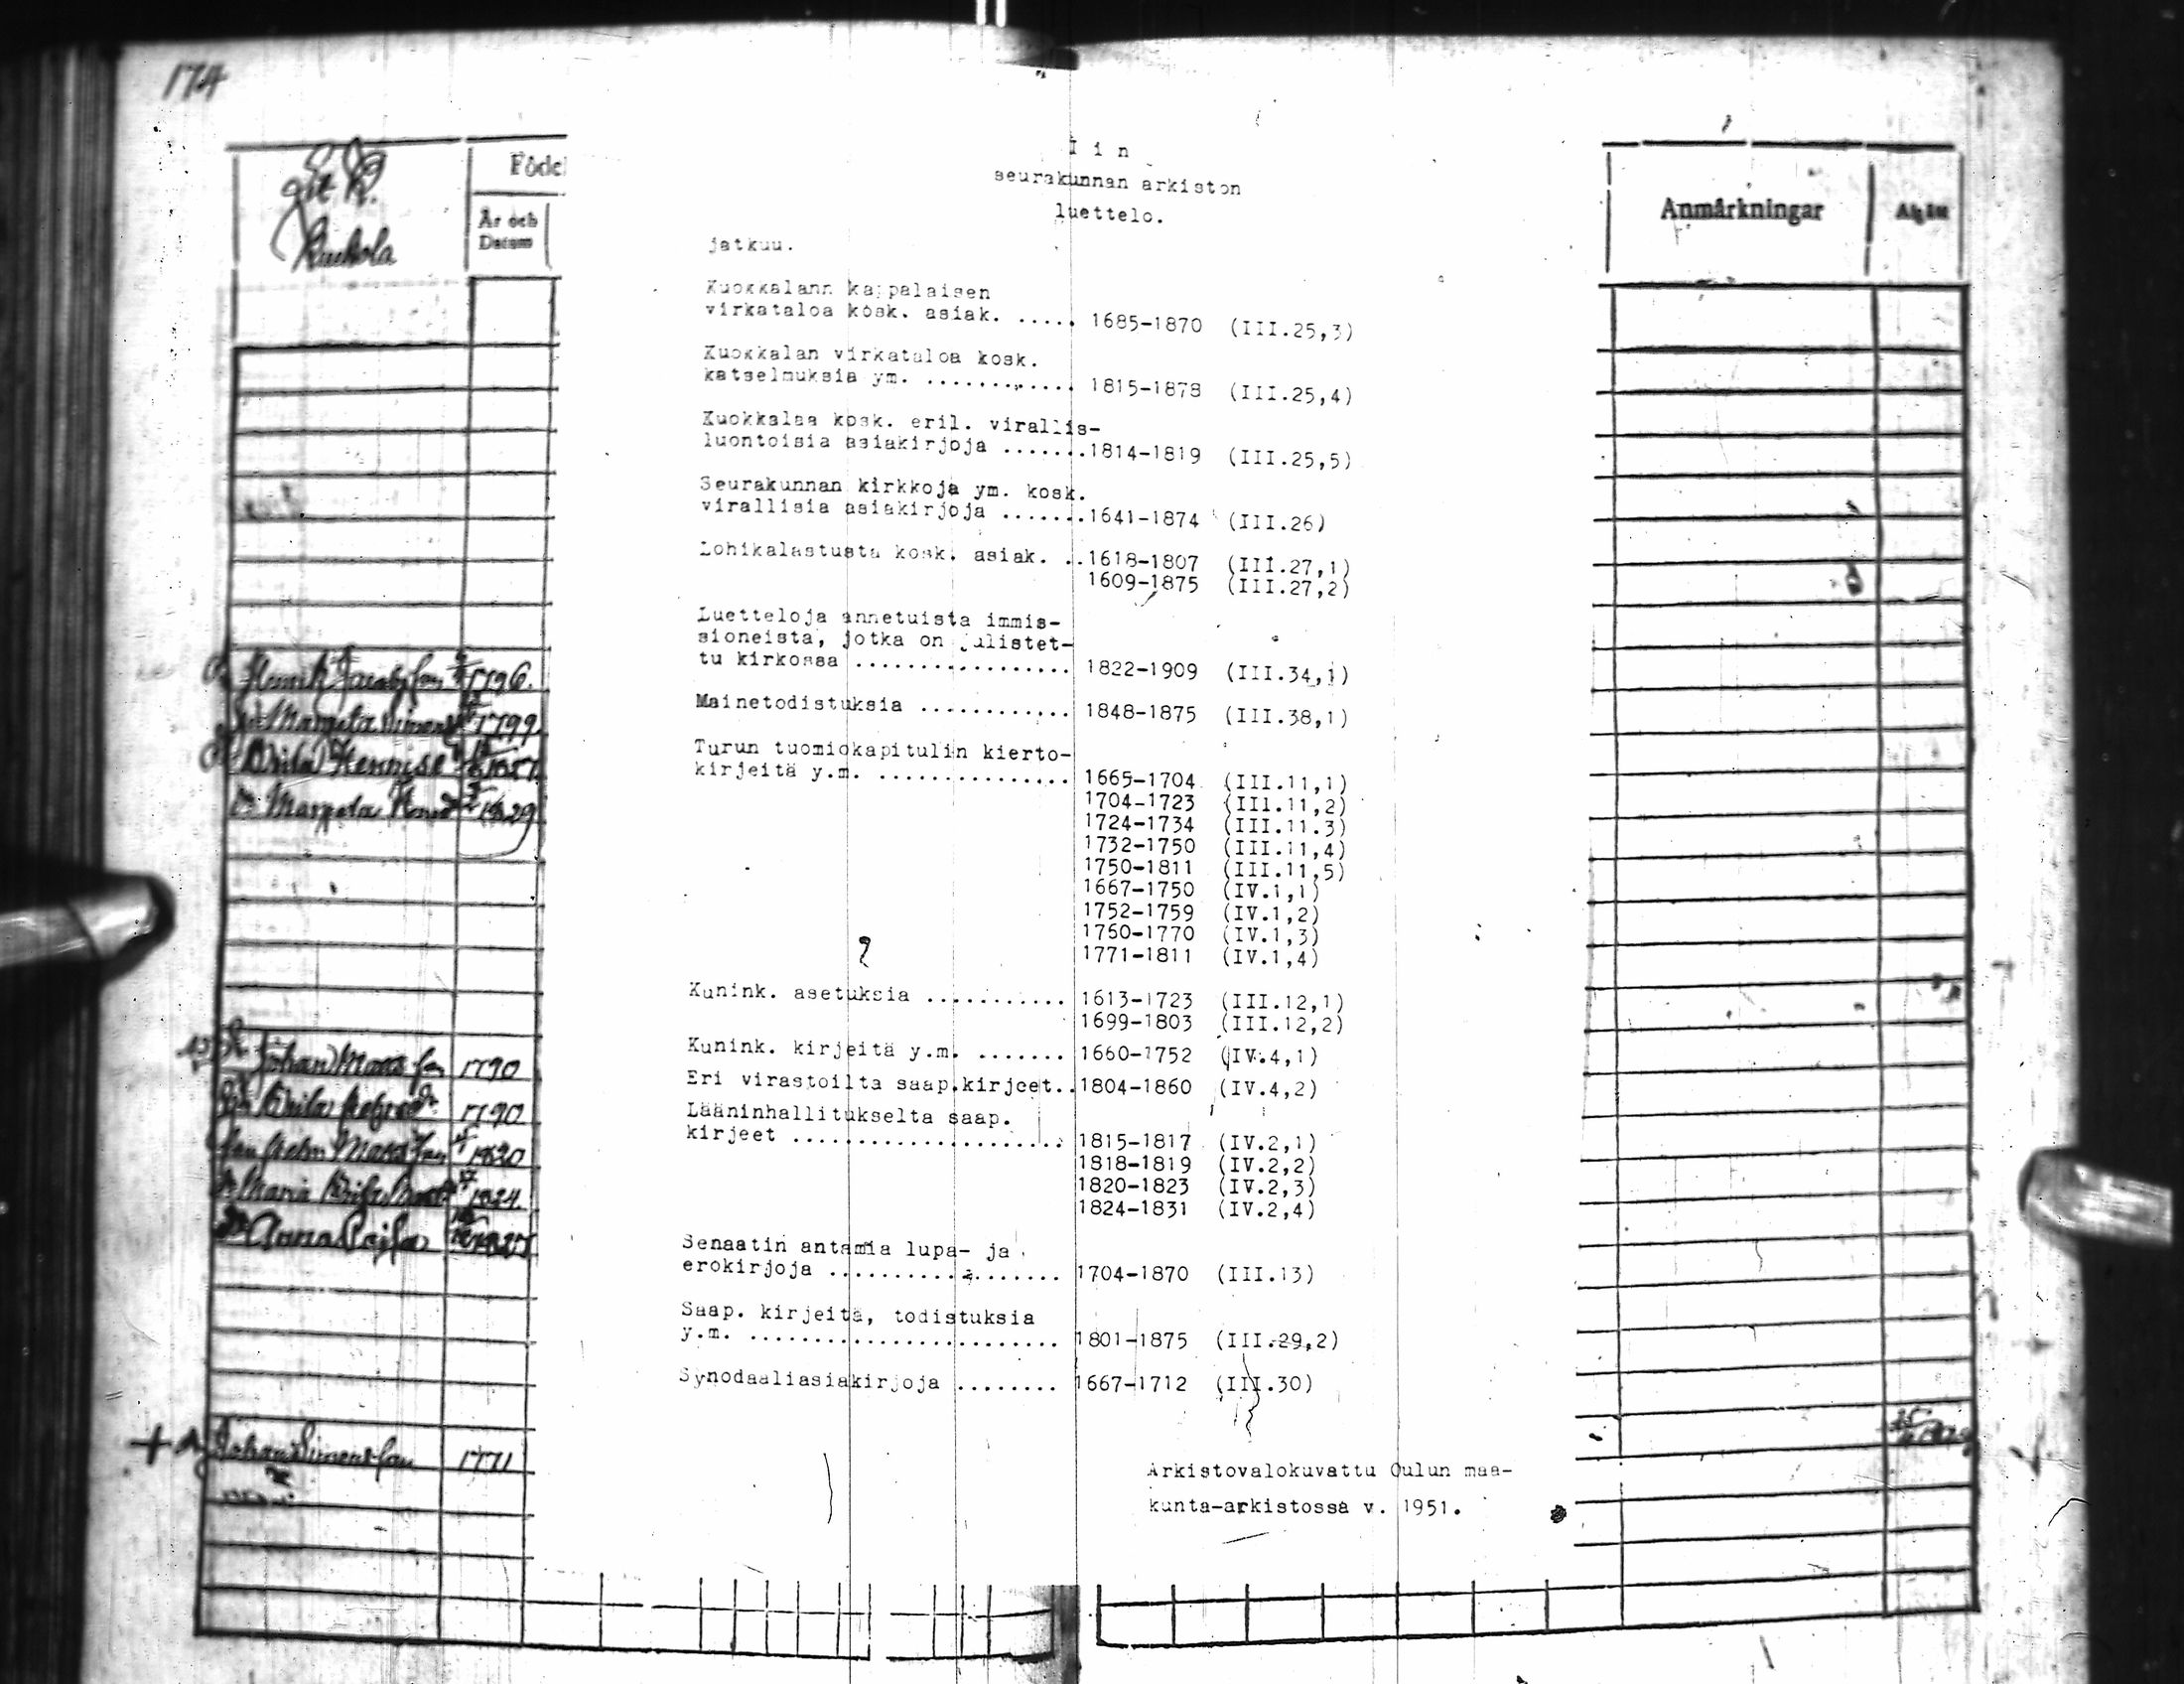 174
Födel
År och
Datum
I i n
seurakunnan arkiston
luettelo.
Anmärkningar
jatkuu.
Kuokkalann kappalaisen
virkataloa kosk. asiak. ..... 1685-1870 (III.25,3)
Kuokkalan virkataloa kosk.
katselmuksia ym. ............ 1815-1878 (III.25,4)
Kuokkalaa kosk. eril. virallis-
luontoisia asiakirjoja .......1814-1819 (III.25,5)
Seurakunnan kirkkoja ym. kosk.
virallisia asiakirjoja .......1641-1874 (III.26)
Lohikalastusta kosk. asiak. ..1618-1807 (III.27,1)
1609-1875 (III.27,2)
Luetteloja annetuista immis-
sioneista, jotka on julistet-
tu kirkossa ................. 1822-1909 (III.34,1)
Mainetodistuksia ............ 1848-1875 (III.38,1)
Turun tuomiokapitulin kierto-
kirjeitä y.m. ............... 1665-1704 (III.11,1)
1704-1723 (III.11,2)
1724-1734 (III.11.3)
1732-1750 (III.11,4)
1750-1811 (III.11,5)
1667-1750 (IV.1,1)
1752-1759 (IV.1,2)
1760-1770 (IV.1,3)
1771-1811 (IV.1,4)
Kunink. asetuksia ........... 1613-1723 (III.12,1)
1699-1803 (III.12,2)
Kunink. kirjeitä y.m. ....... 1660-1752 (IV.4,1)
Eri virastoilta saap.kirjeet..1804-1860 (IV.4,2)
Lääninhallitukselta saap.
kirjeet ..................... 1815-1817 (IV.2,1)
1818-1819 (IV.2,2)
1820-1823 (IV.2,3)
1824-1831 (IV.2,4)
Senaatin antamia lupa- ja
erokirjoja .................. 1704-1870 (III.13)
Saap. kirjeitä, todistuksia
y.m. ........................ 1801-1875 (III.29,2)
Synodaaliasiakirjoja ........ 1667-1712 (III.30)
Arkistovalokuvattu Oulun maa-
kunta-arkistossa v. 1951.
Henrik Jacobsson 1796.
Margeta 1799
Brita
Margeta 1829
Johan Matsson 1790
Brita 1790
Matsson 1820
Maria Brita 1824.
Anna Cajsa
Johan Simonsson 1771